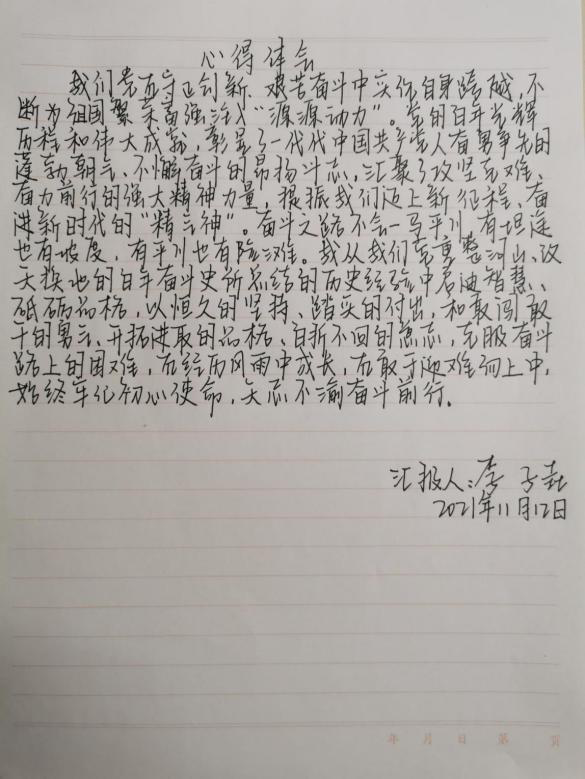 心得体会
我们党在守正创新、艰苦奋斗中实你自身跨越,不
断为祖国繁荣富强注入“源源动力”。党的百年光辉
历程和伟大成就,彰显了一代代中国共产党人奋勇争先的
蓬勃朝气、不懈奋斗的昂扬斗志,汇聚了攻坚克难、
奋力前行的强大精神力量,提振我们迈上新征程、奋
进新时代的“精气神”。奋斗之路不会一马平川,有坦途
也有坡度,有平川也有险滩。我从我们党重整河山、改
天换地的百年奋斗史所总结的历史经验中启迪智慧、
砥砺品格,以恒久的坚持、踏实的付出,和敢闯敢
干的勇气、开拓进取的品格、百折不回的意志,克服奋斗
路上的困难,在经历风雨中成长,在敢于迎难而上中,
始终牢记初心使命,矢志不渝奋斗前行。
汇报人:李子
2021年11月12日
年 月 日 第 页